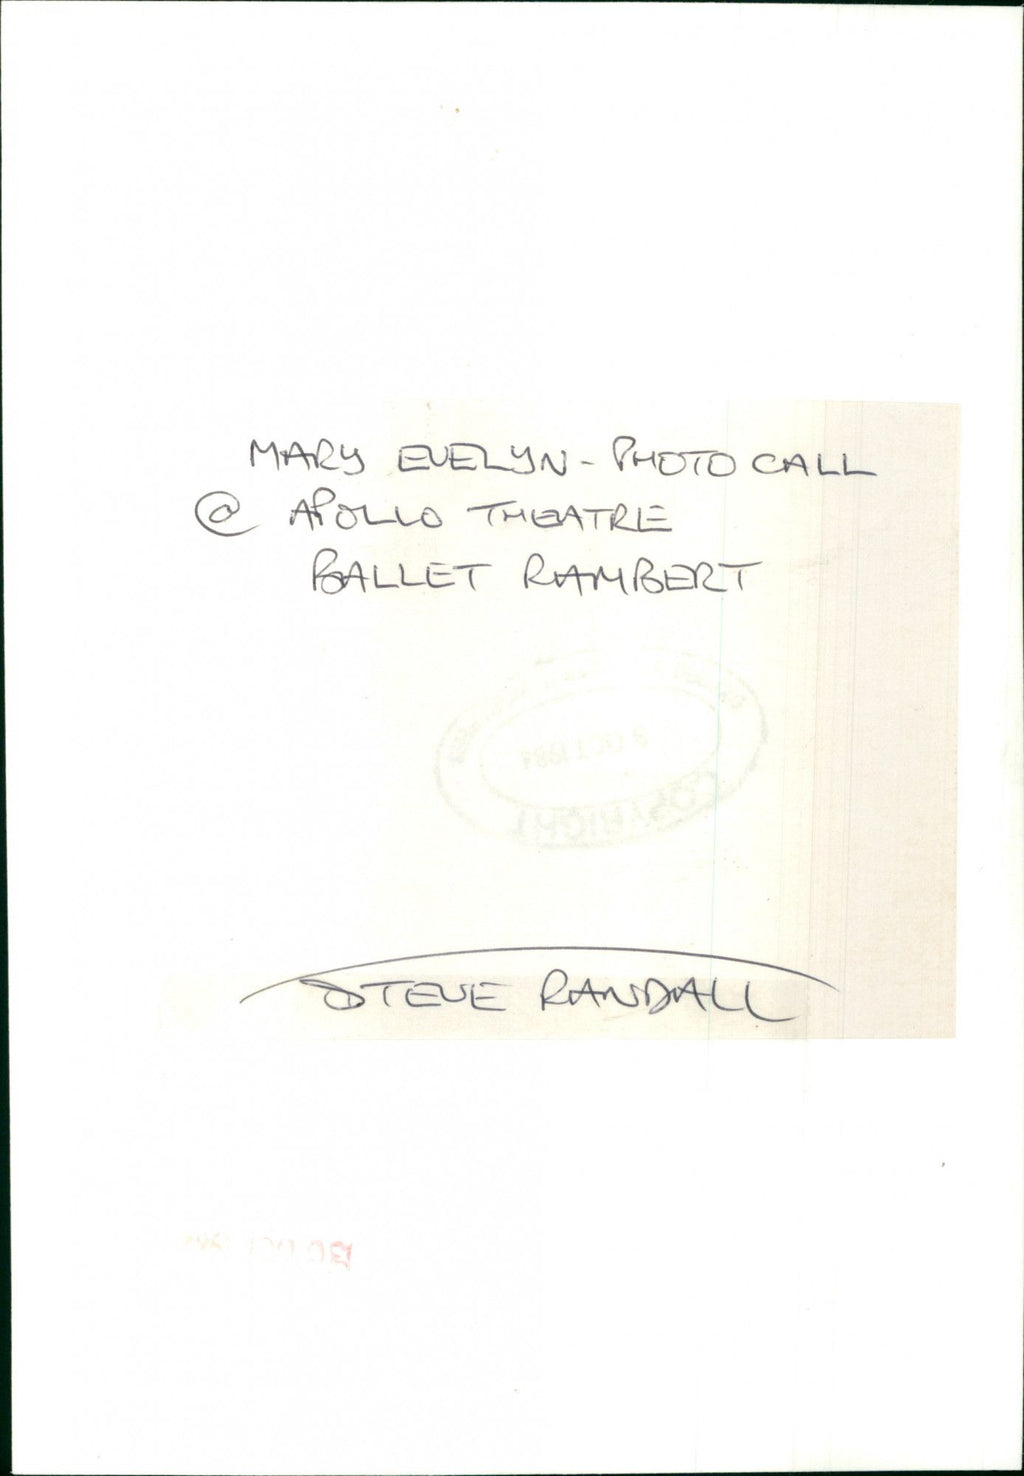 MARY EVELYN - PHOTO CALL
@ APOLLO THEATRE
BALLET RAMBERT
OCT 1984
COPYRIGHT
STEVE RANDALL